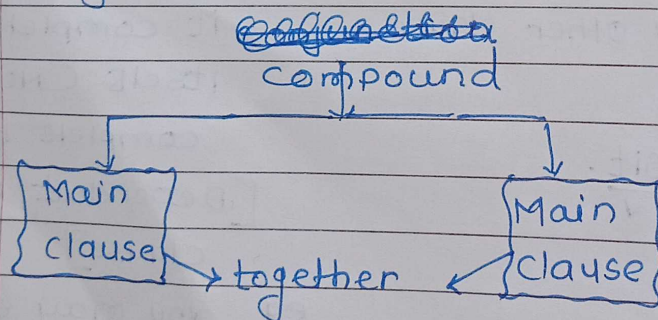 compound
Main
clause
Main
clause
together